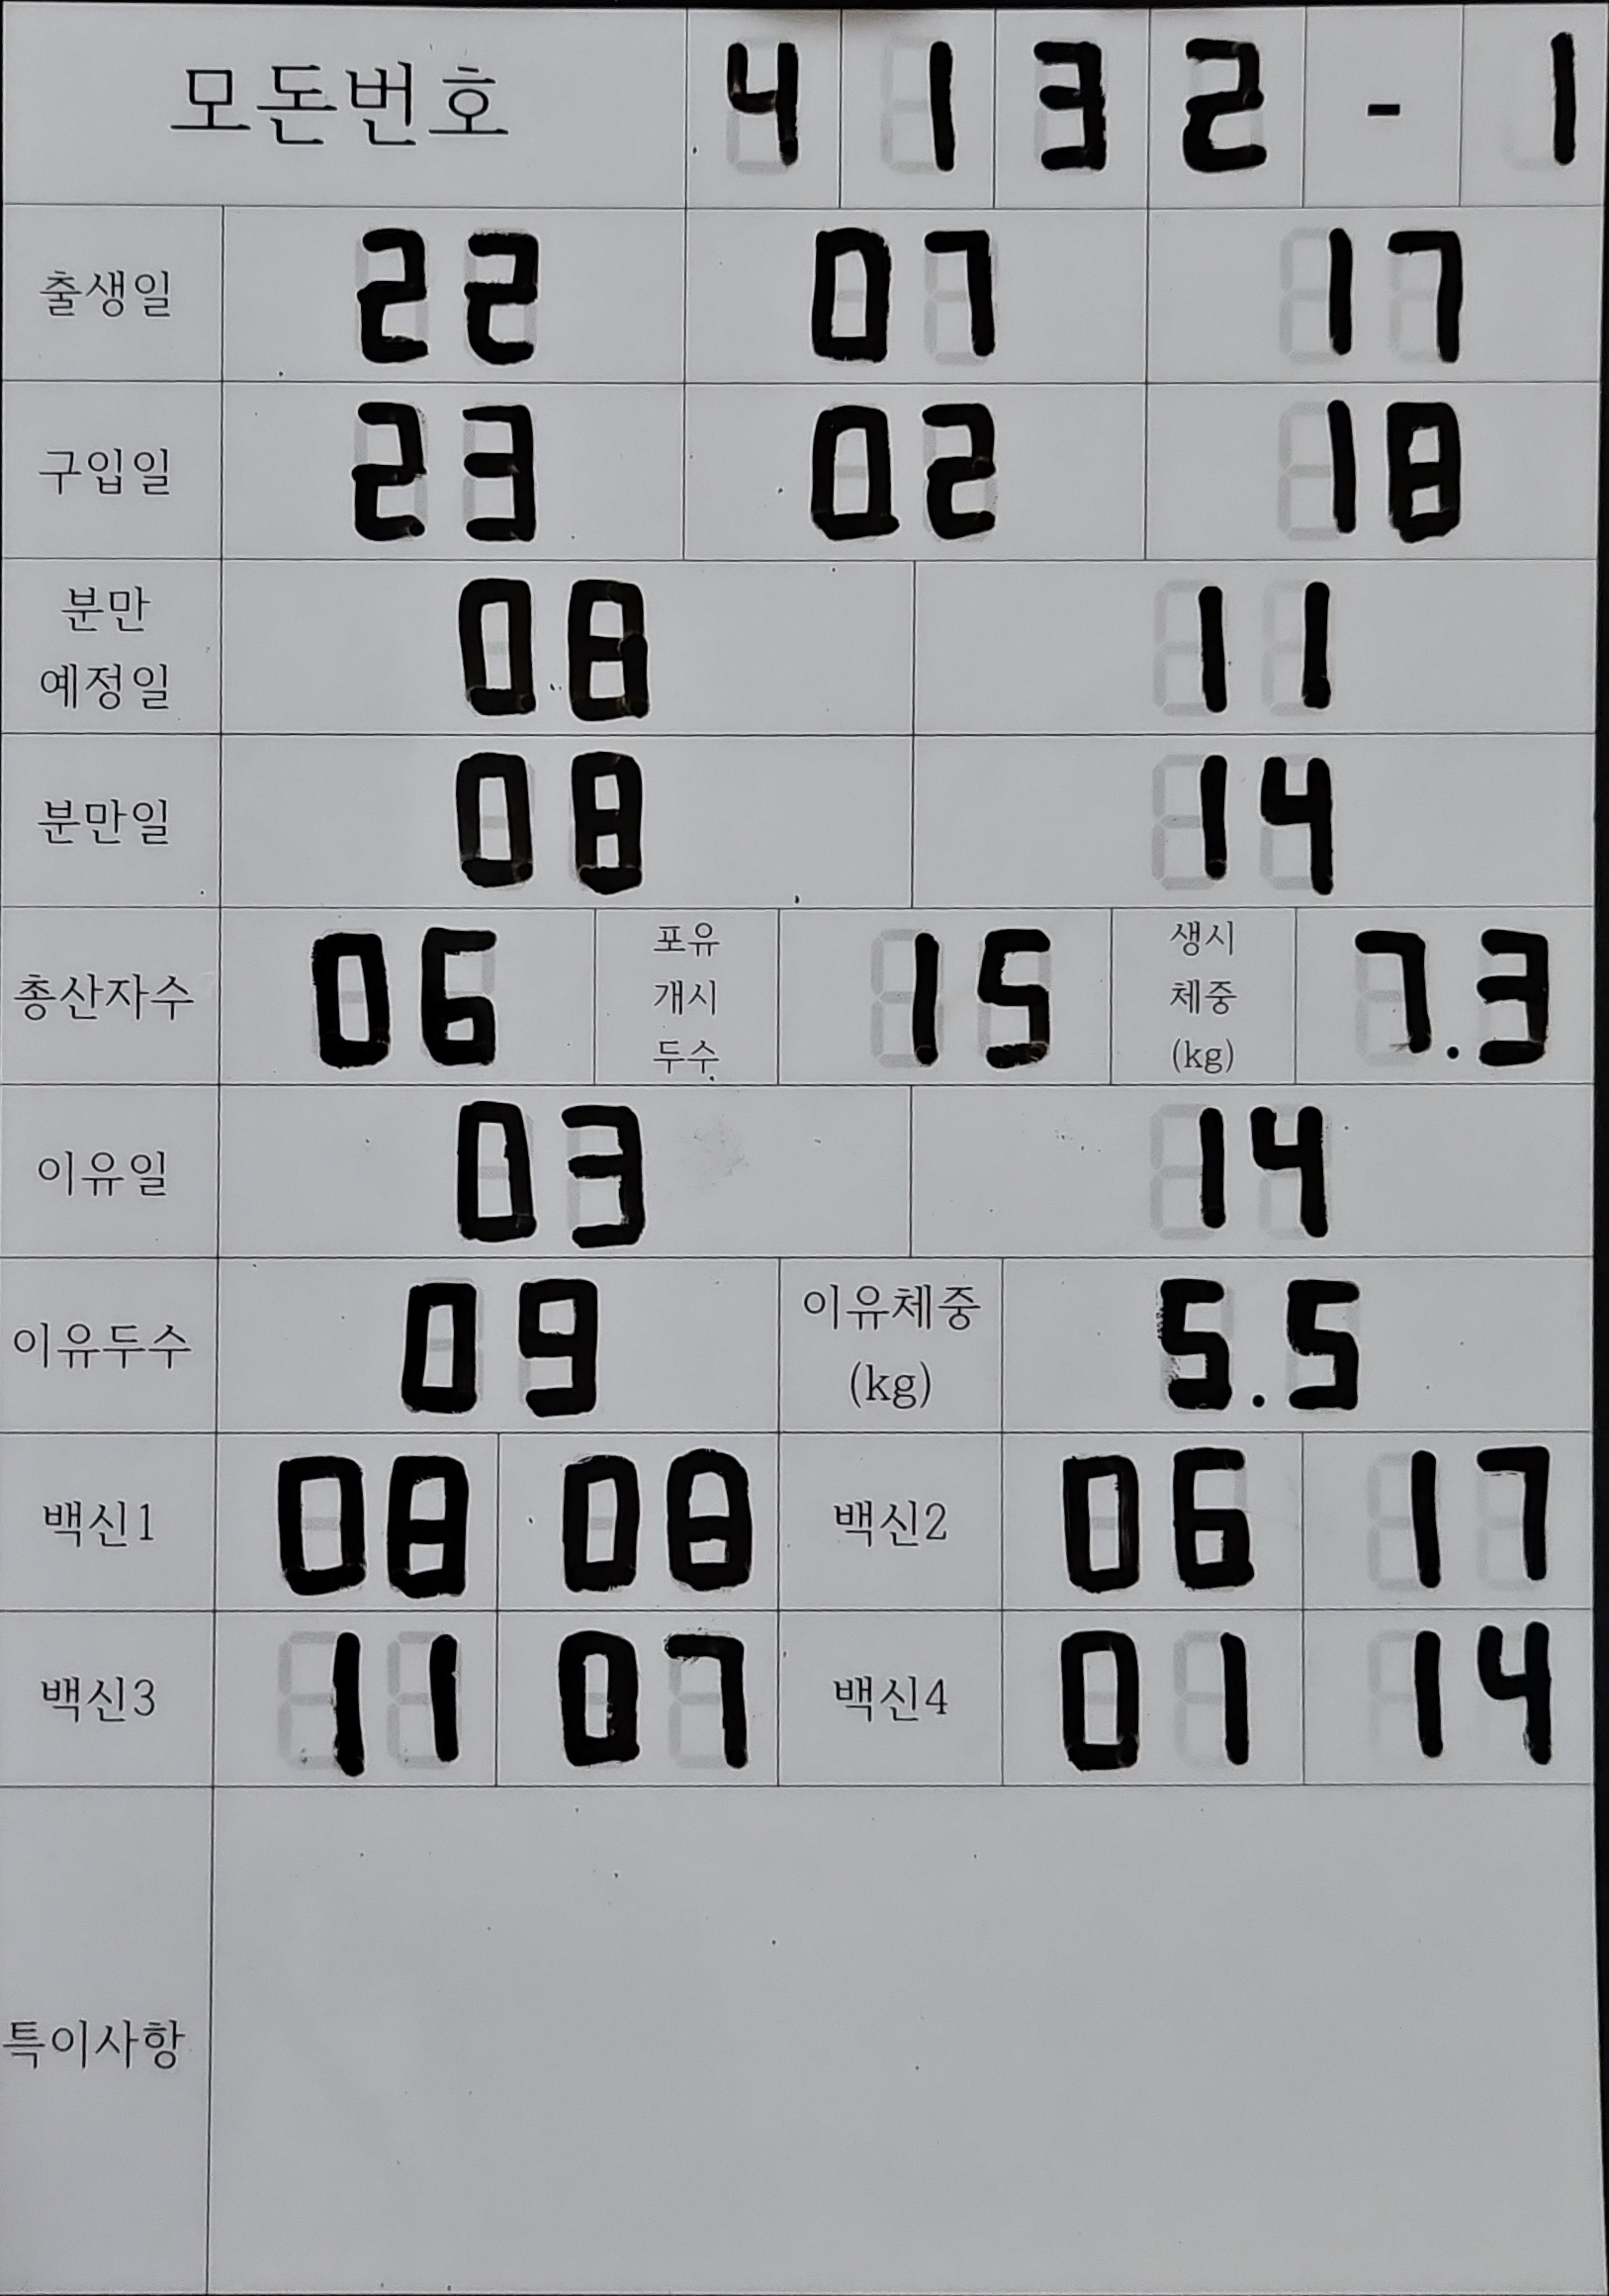 모돈번호 4 1 3 2 - 1
출생일 22 07 17
구입일 23 02 18
분만
예정일 08 11
분만일 08 14
총산자수 06 포유
개시
두수 15 생시
체중
(kg) 7.3
이유일 03 14
이유두수 09 이유체중
(kg) 5.5
백신1 08 08 백신2 06 17
백신3 11 07 백신4 01 14
특이사항